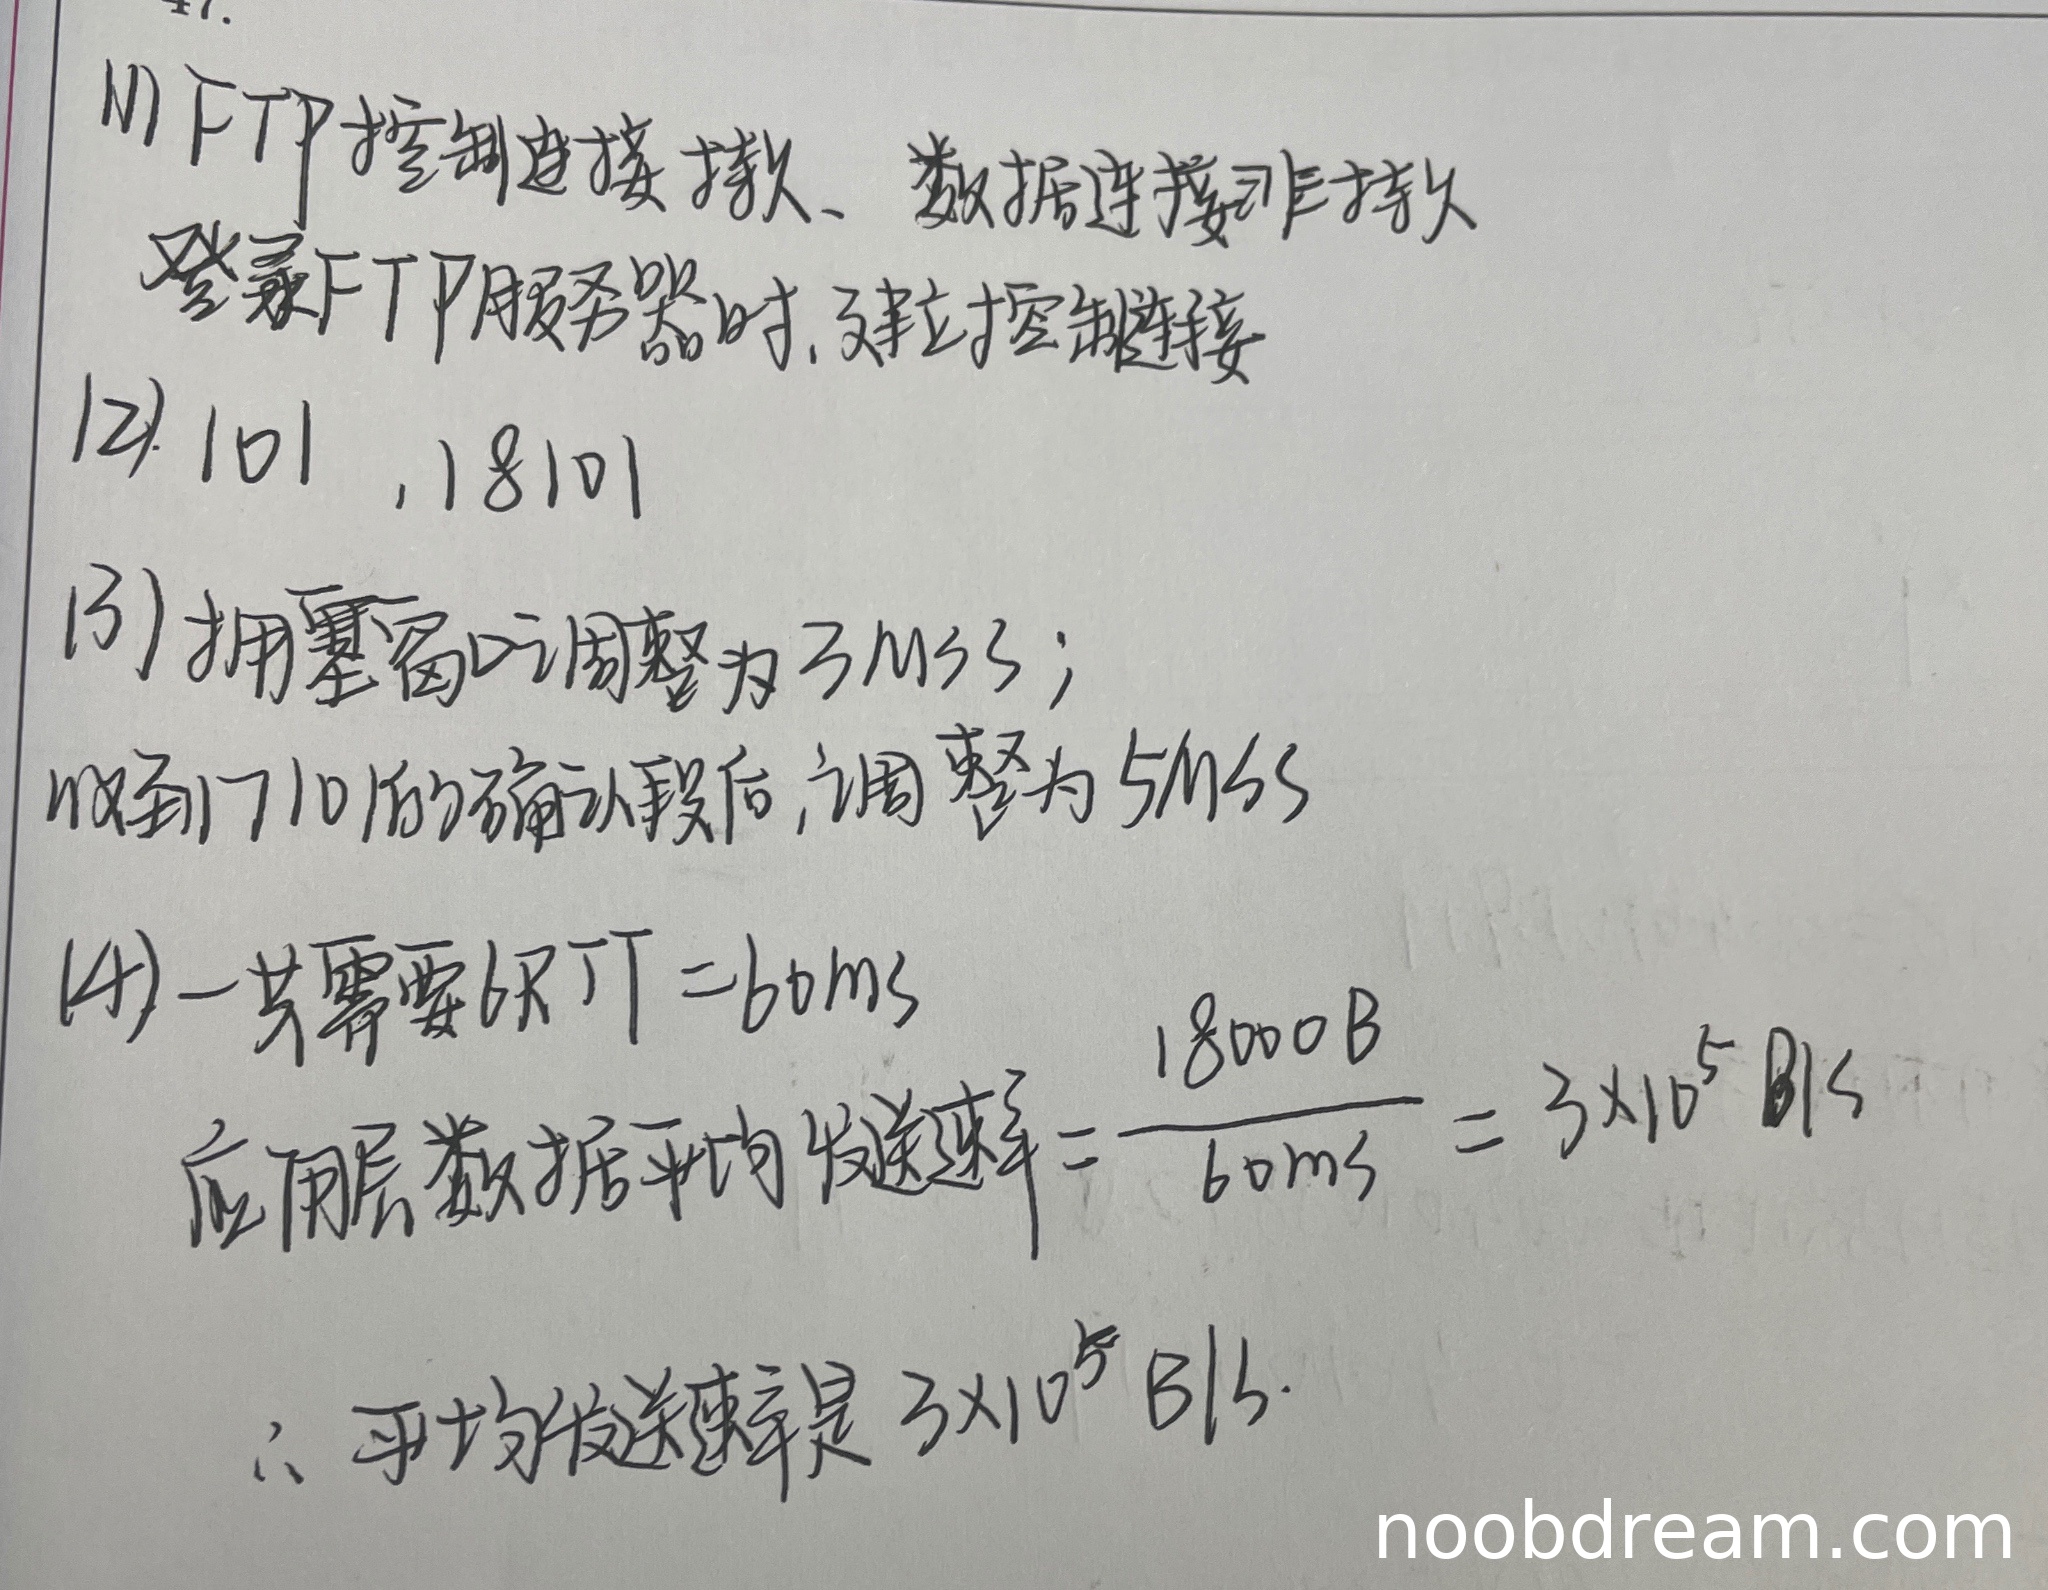 47.
(1) FTP控制连接持久、数据连接非持久
登录FTP服务器时,建立控制连接
(2). 101 , 18101
(3) 拥塞窗口调整为3MSS;
收到17101的确认段后,调整为5MSS
(4) 一共需要6RTT=60ms
应用层数据平均发送速率 = 18000B / 60ms = 3×10⁵ B/s
∴ 平均发送速率是 3×10⁵ B/s.
noobdream.com